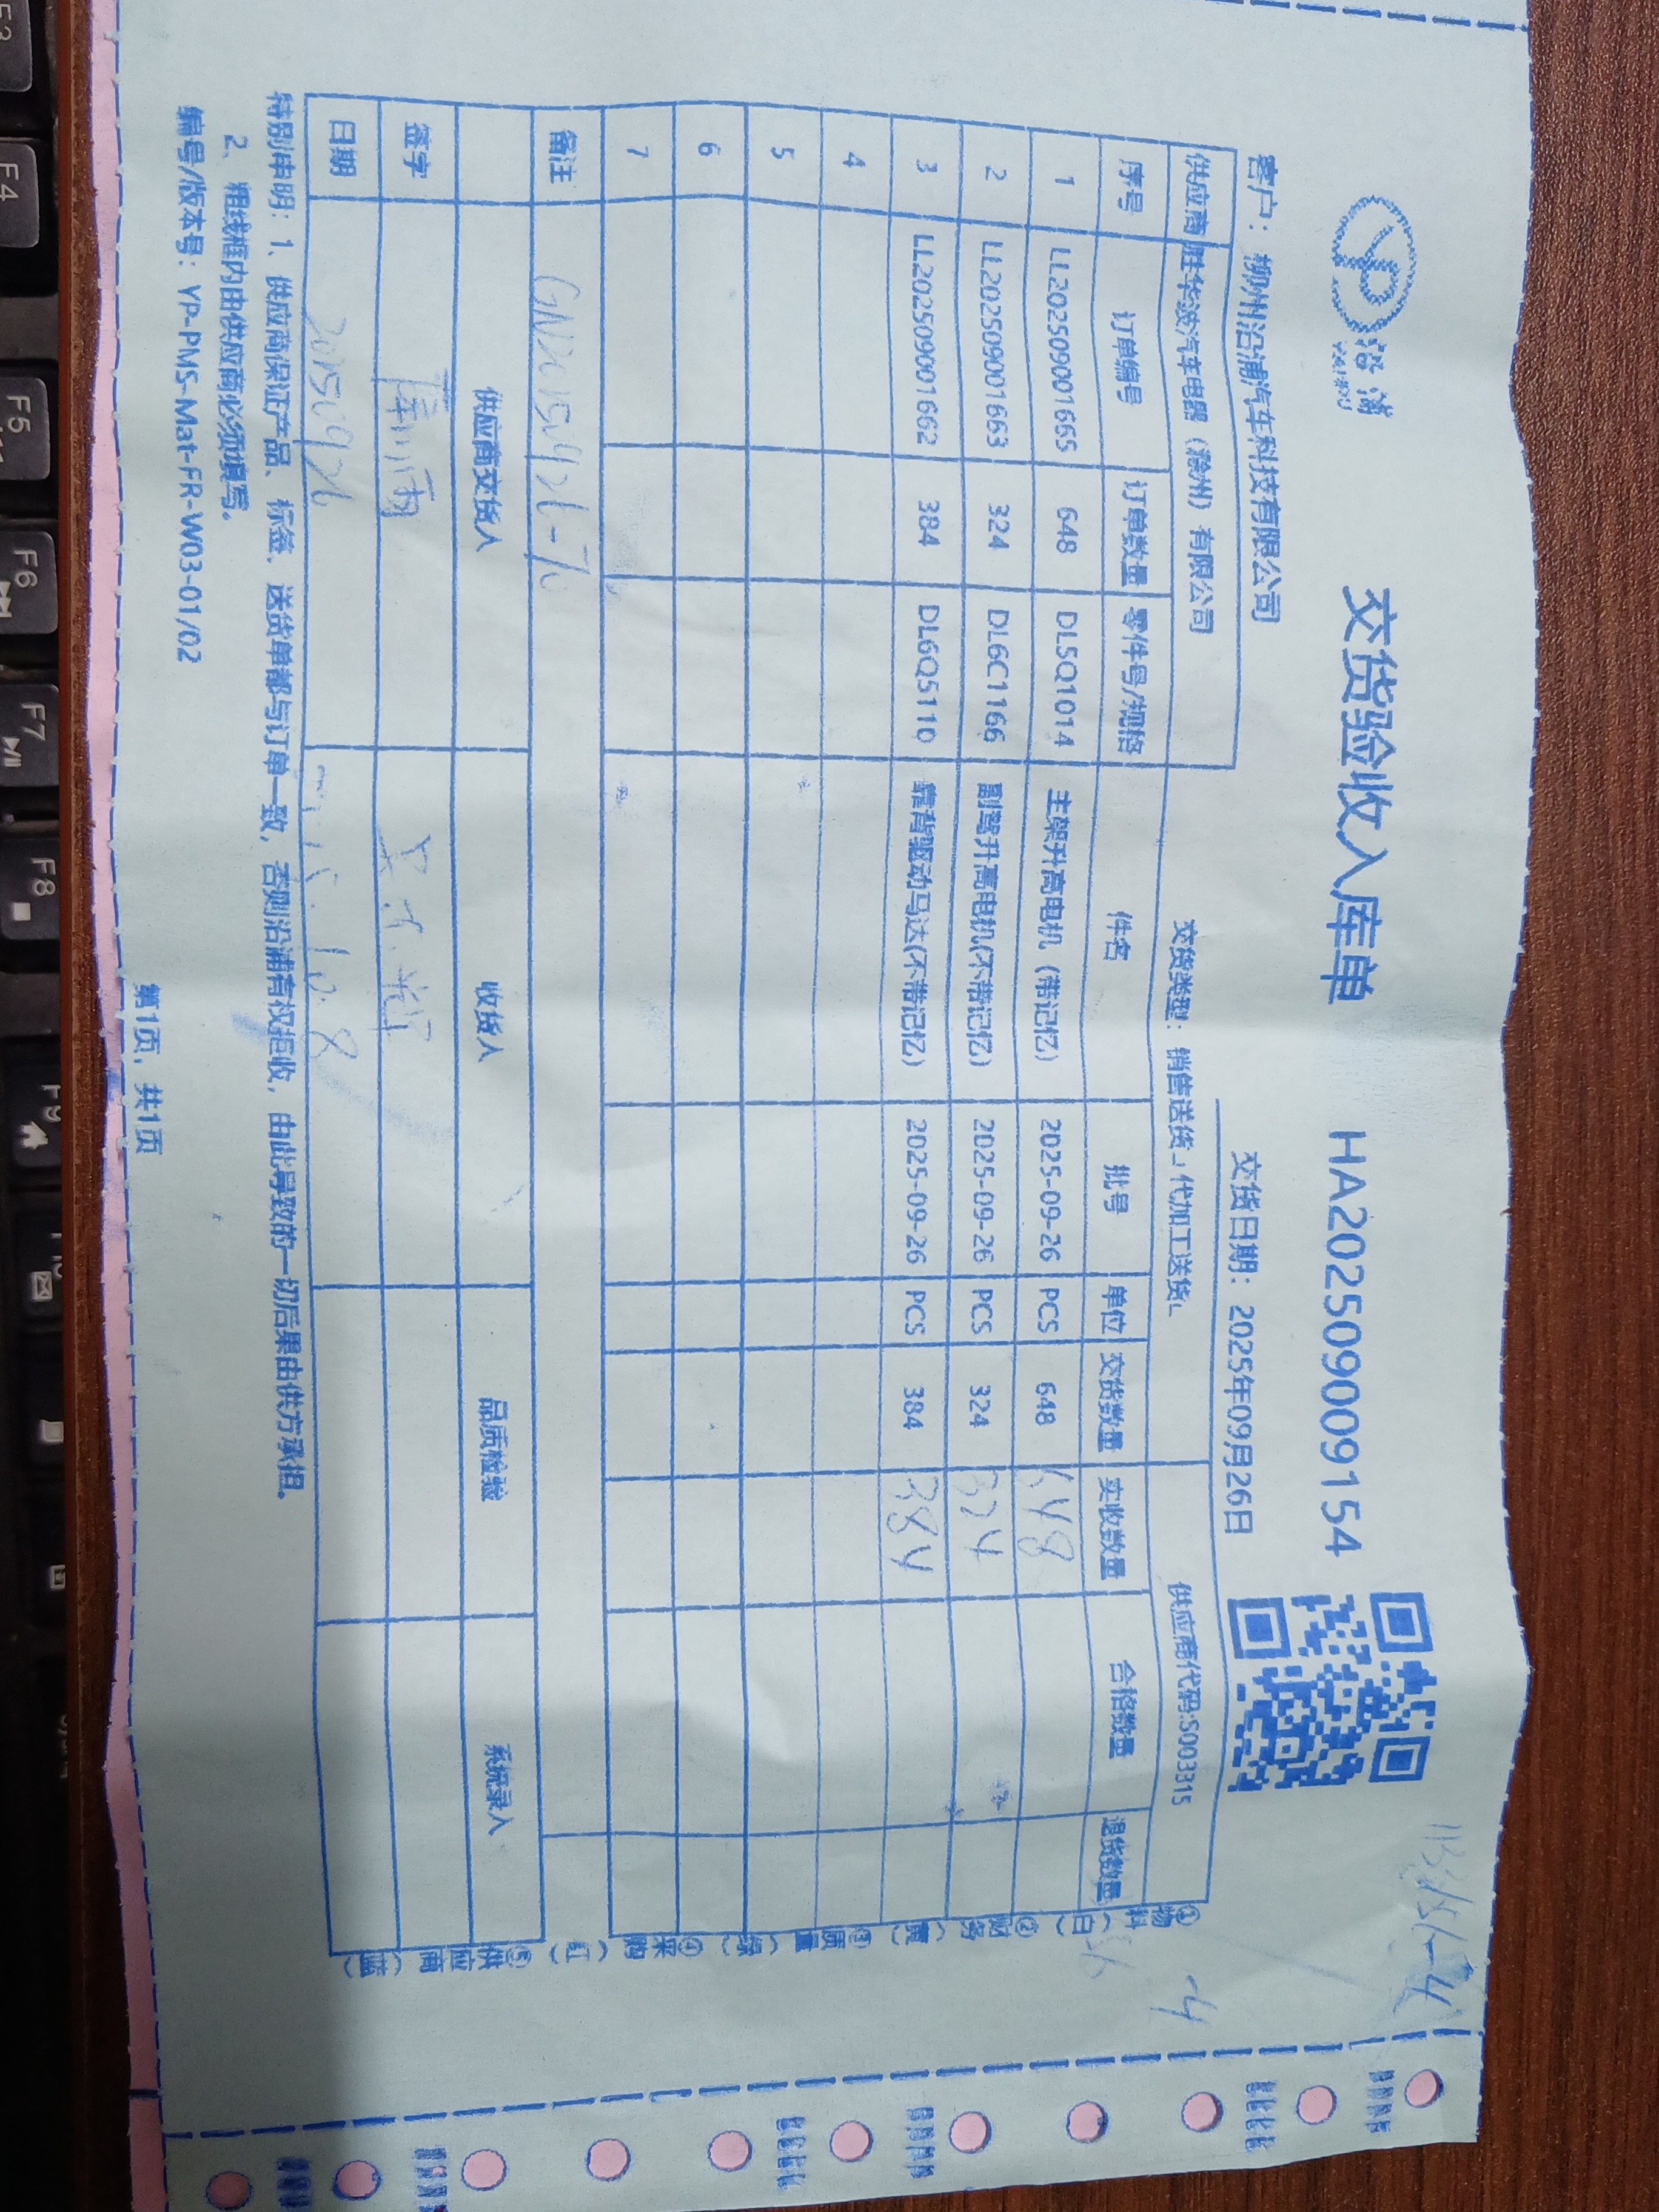 沿浦
交货验收入库单 HA20250900009154
客户：柳州沿浦汽车科技有限公司 交货日期：2025年09月26日
供应商 胜华波汽车电器（滁州）有限公司 交货类型：销售送货 代加工送货 供应商代码:S003315
序号 订单编号 订单数量 零件号/规格 件名 批号 单位 交货数量 实收数量 合格数量 退货数量
1 LL20250900166S 648 DL5Q1014 主架升高电机（带记忆） 2025-09-26 PCS 648 648
2 LL202509001663 324 DL6C1166 副驾升高电机(不带记忆) 2025-09-26 PCS 324 324
3 LL202509001662 384 DL6Q5110 靠背驱动马达(不带记忆) 2025-09-26 PCS 384 384
4
5
6
7
备注
供应商交货人 收货人 品质检验 系统录入
签字
日期 20250926 10.8
特别申明：1、供应商保证产品、标签、送货单都与订单一致，否则沿浦有权拒收，由此导致的一切后果由供方承担。
2、粗线框内由供应商必须填写。
编号/版本号：YP-PMS-Mat-FR-W03-01/02
第1页，共1页
①物料（白）②财务（黄）③质量（绿）④采购（红）⑤供应商（蓝）
-4
F4
F5
F6
F7
F8
F9